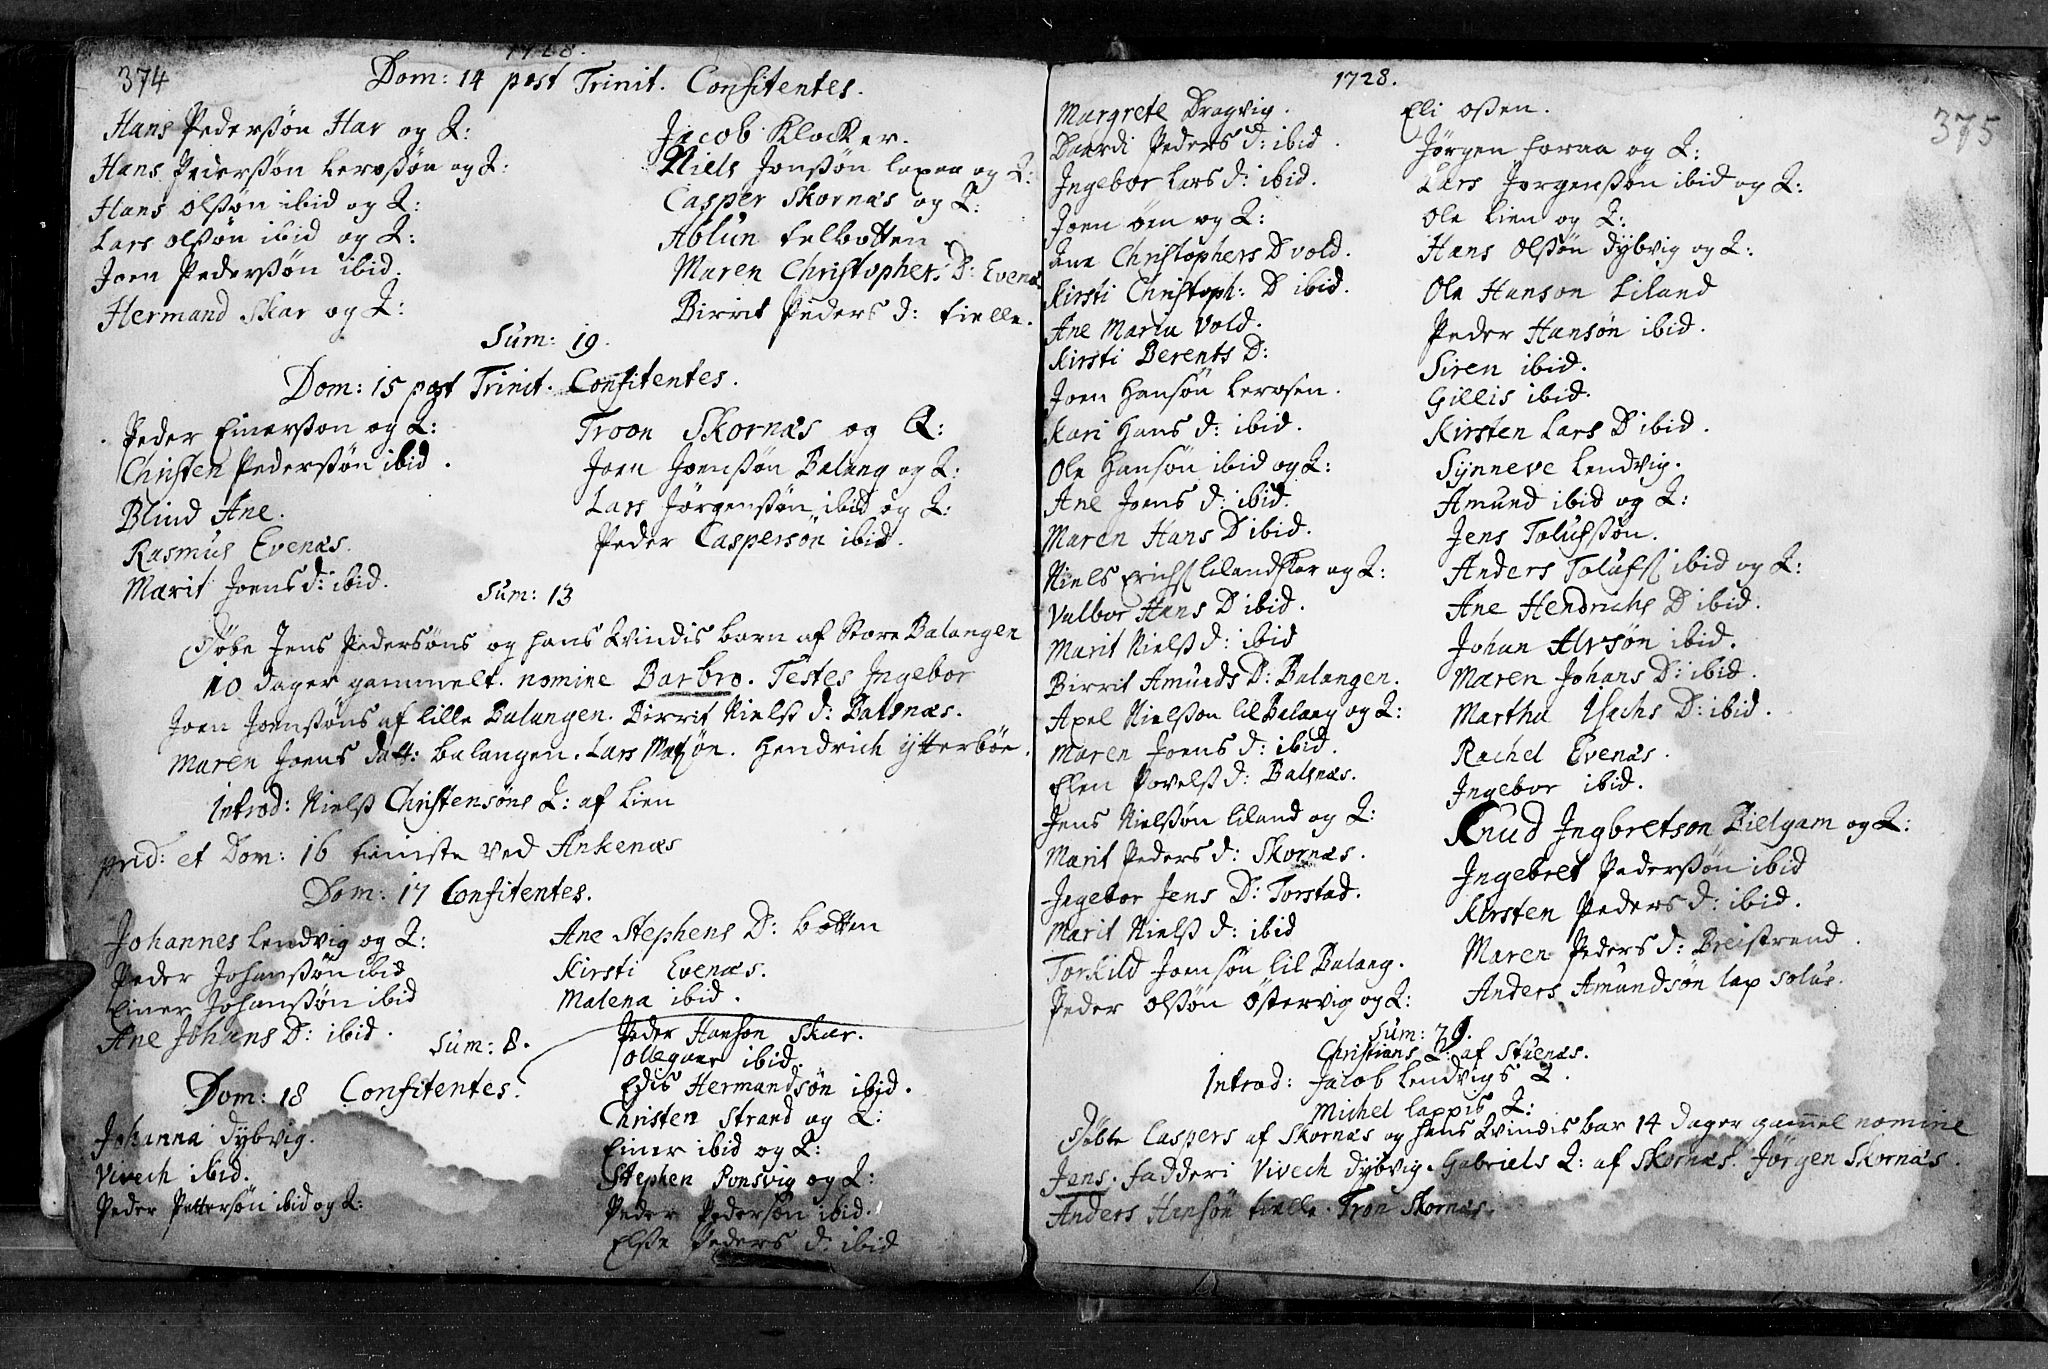 374
1728.
Dom: 14 post Trinit. Confitentes.
Hans Pederssøn Har og Q:
Hans Pederssøn Lerossøn og Q:
Hans Olssøn ibid og Q:
Lars Olssøn ibid og Q:
Joen Pederssøn ibid.
Hermand Skar og Q:
Jacob Klocker.
Niels Jonssøn lapaa og Q:
Casper Skornæs og Q:
Ablun felbotten.
Maren Christophers D: Evenæs
Birrit Peders d: fielle.
Sum: 19.
Dom: 15 post Trinit. Confitentes.
Peder Einersson og Q:
Christen Pederssøn ibid.
Blind Ane.
Rasmus Evenæs.
Marit Joens d: ibid.
Troon Skornæs og Q:
Joen Joenssøn Balang og Q:
Lars Jørgenssøn ibid og Q:
Peder Caspersøn ibid.
Sum: 13
Døbe Jens Pedersøns og hans Qvindis barn af Store Balangen
10 dager gammelt. nomine Barbro. Testes Ingebor
Joen Joenssøns af lille Balangen. Birrit Nielss d: Balsnæs.
Maren Joens datt: balangen. Lars Matsøn. Hendrich ytterbøe.
Introd: Nielss Christensøns Q: af Lien
prid: et Dom: 16 tieniste ved Ankenæs
Dom: 17 Confitentes.
Johannes Lendvig og Q:
Peder Johanssøn ibid
Einer Johanssøn ibid
Ane Johans D: ibid.
Ane Stephens D: botten
Kirsti Evenæs.
Malena ibid.
Sum: 8.
Dom: 18 Confitentes.
Johanna dybvig.
Vivech ibid.
Peder Pettersøn ibid og Q:
Peder Hanson Skar.
Ollegaar ibid.
Edis Hermandsøn ibid.
Christen Strand og Q:
Einer ibid og Q:
Stephen Ponsvig og Q:
Peder Pedersøn ibid.
Elsse Peders d: ibid
1728.
375
Margrete Dragvig.
Daardi Peders d: ibid.
Ingebor Lars d: ibid.
Joen øen og Q:
Ane Christophers D vold.
Kirsti Christoph: D ibid.
Ane Maria Vold.
Kirsti Berents D:
Joen Hansøn Lerosen.
Kari Hans d: ibid.
Ole Hansøn ibid og Q:
Ane Joens d: ibid.
Maren Hans D ibid.
Niels Erichs Lilandskar og Q:
Valbor Hans D ibid.
Marit Nielss d: ibid
Birrit Amunds D: Balangen.
Axel Nielsson lil Balang og Q:
Maren Joens d: ibid.
Elen Povelss d: Balsnæs.
Jens Nielssøn Liland og Q:
Marit Peders d: Skornæs.
Ingebor Jens D: Torstad.
Marit Nielss d: ibid
Torkild Joensøn lil Balang.
Peder Olssøn Østervig og Q:
Eli ossen.
Jørgen foraa og Q:
Lars Jørgenssøn ibid og Q:
Ole Lien og Q:
Hans Olssøn dybvig og Q:
Ole Hanson Liland
Peder Hansøn ibid.
Siren ibid.
Gillis ibid.
Kirsten Lars D ibid.
Synneve Lendvig.
Amund ibid og Q:
Jens Tolufssøn.
Anders Tolufs ibid og Q:
Ane Hendrichs D ibid.
Johan Alvsøn ibid.
Maren Johans D: ibid.
Martha Isachs D: ibid.
Rachel Evenæs.
Ingebor ibid.
Knud Ingbretson Bielgam og Q:
Ingebret Pederssøn ibid
Kirsten Peders d: ibid.
Maren Peders d: Breistrand.
Anders Amundsøn lap solus.
Sum: 79.
Christians Q: af Stuenæs.
Introd: Jacob Lendvigs Q.
Michel lappis Q:
Døbte Caspers af Skornæs og hans Qvindis bar 14 dager gammel nomine
Jens. fadderi Vivech dybvig. Gabriels Q: af Skornæs. Jørgen Skornæs.
Anders Hansøn fielle. Tron Skornæs.